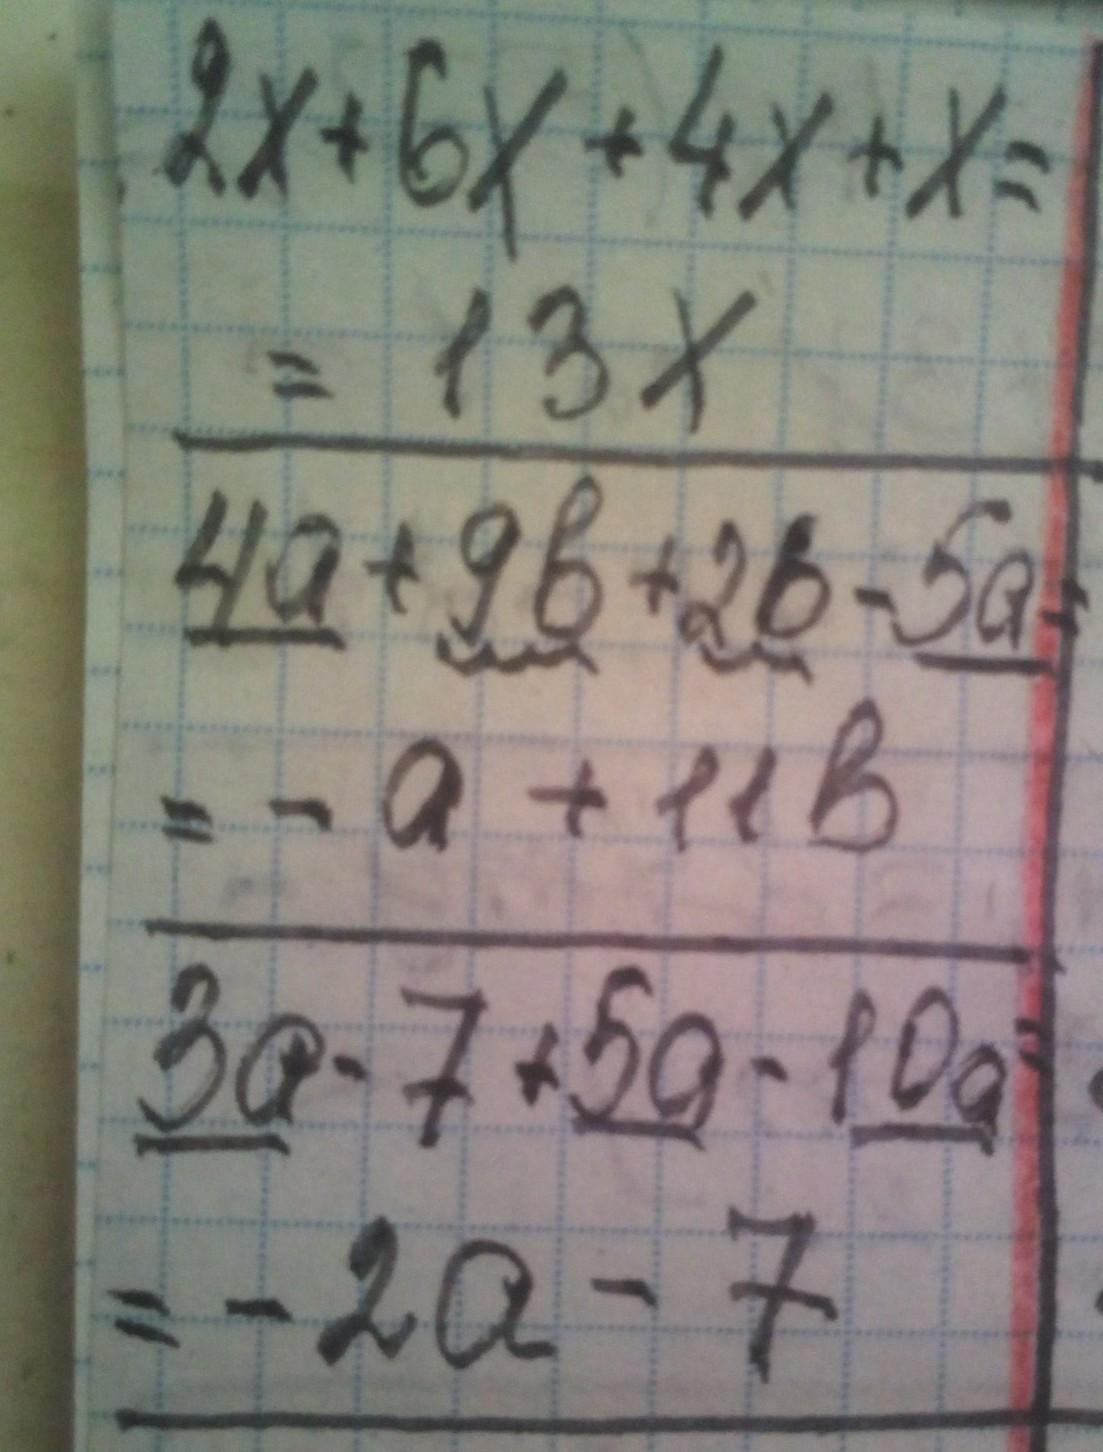 2x+6x+4x+x=
= 13x
4a+9b+2b-5a=
= -a+11b
3a-7+5a-10a=
= -2a-7